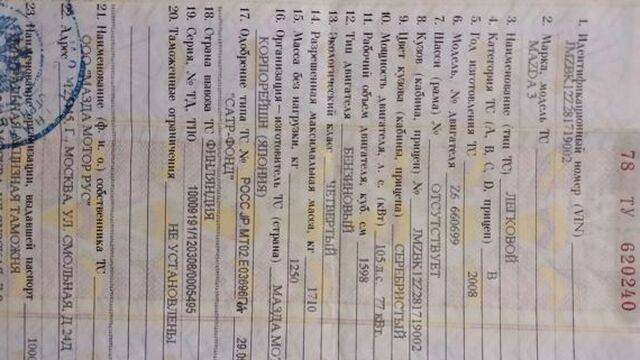 78 ТУ 620240
1. Идентификационный номер (VIN) JMZBK12Z281719002
2. Марка, модель ТС MAZDA 3
3. Наименование (тип ТС) ЛЕГКОВОЙ
4. Категория ТС (А, В, С, D, прицеп) В
5. Год изготовления ТС 2008
6. Модель, № двигателя Z6 660699
7. Шасси (рама) № ОТСУТСТВУЕТ
8. Кузов (кабина, прицеп) № JMZBK12Z281719002
9. Цвет кузова (кабины, прицепа) СЕРЕБРИСТЫЙ
10. Мощность двигателя, л. с. (кВт) 105 л.с. 77 кВт.
11. Рабочий объем двигателя, куб. см 1598
12. Тип двигателя БЕНЗИНОВЫЙ
13. Экологический класс ЧЕТВЕРТЫЙ
14. Разрешенная максимальная масса, кг 1710
15. Масса без нагрузки, кг 1250
16. Организация–изготовитель ТС (страна) МАЗДА МО
КОРПОРЕЙШН (ЯПОНИЯ)
17. Одобрение типа ТС № РОСС JP.МТ02.Е03696 от 29.0
"САТР-ФОНД"
18. Страна вывоза ТС ФИНЛЯНДИЯ
19. Серия, № ТД, ТПО 10009191/120308/0005495
20. Таможенные ограничения НЕ УСТАНОВЛЕНЫ
21. Наименование (ф. и. о.) собственника ТС
ООО "МАЗДА МОТОР РУС"
22. Адрес 125, Г. МОСКВА, УЛ. СМОЛЬНАЯ, Д.24Д
23. Наименование организации, выдавшей паспорт
ТАМОЖНЯ 1000